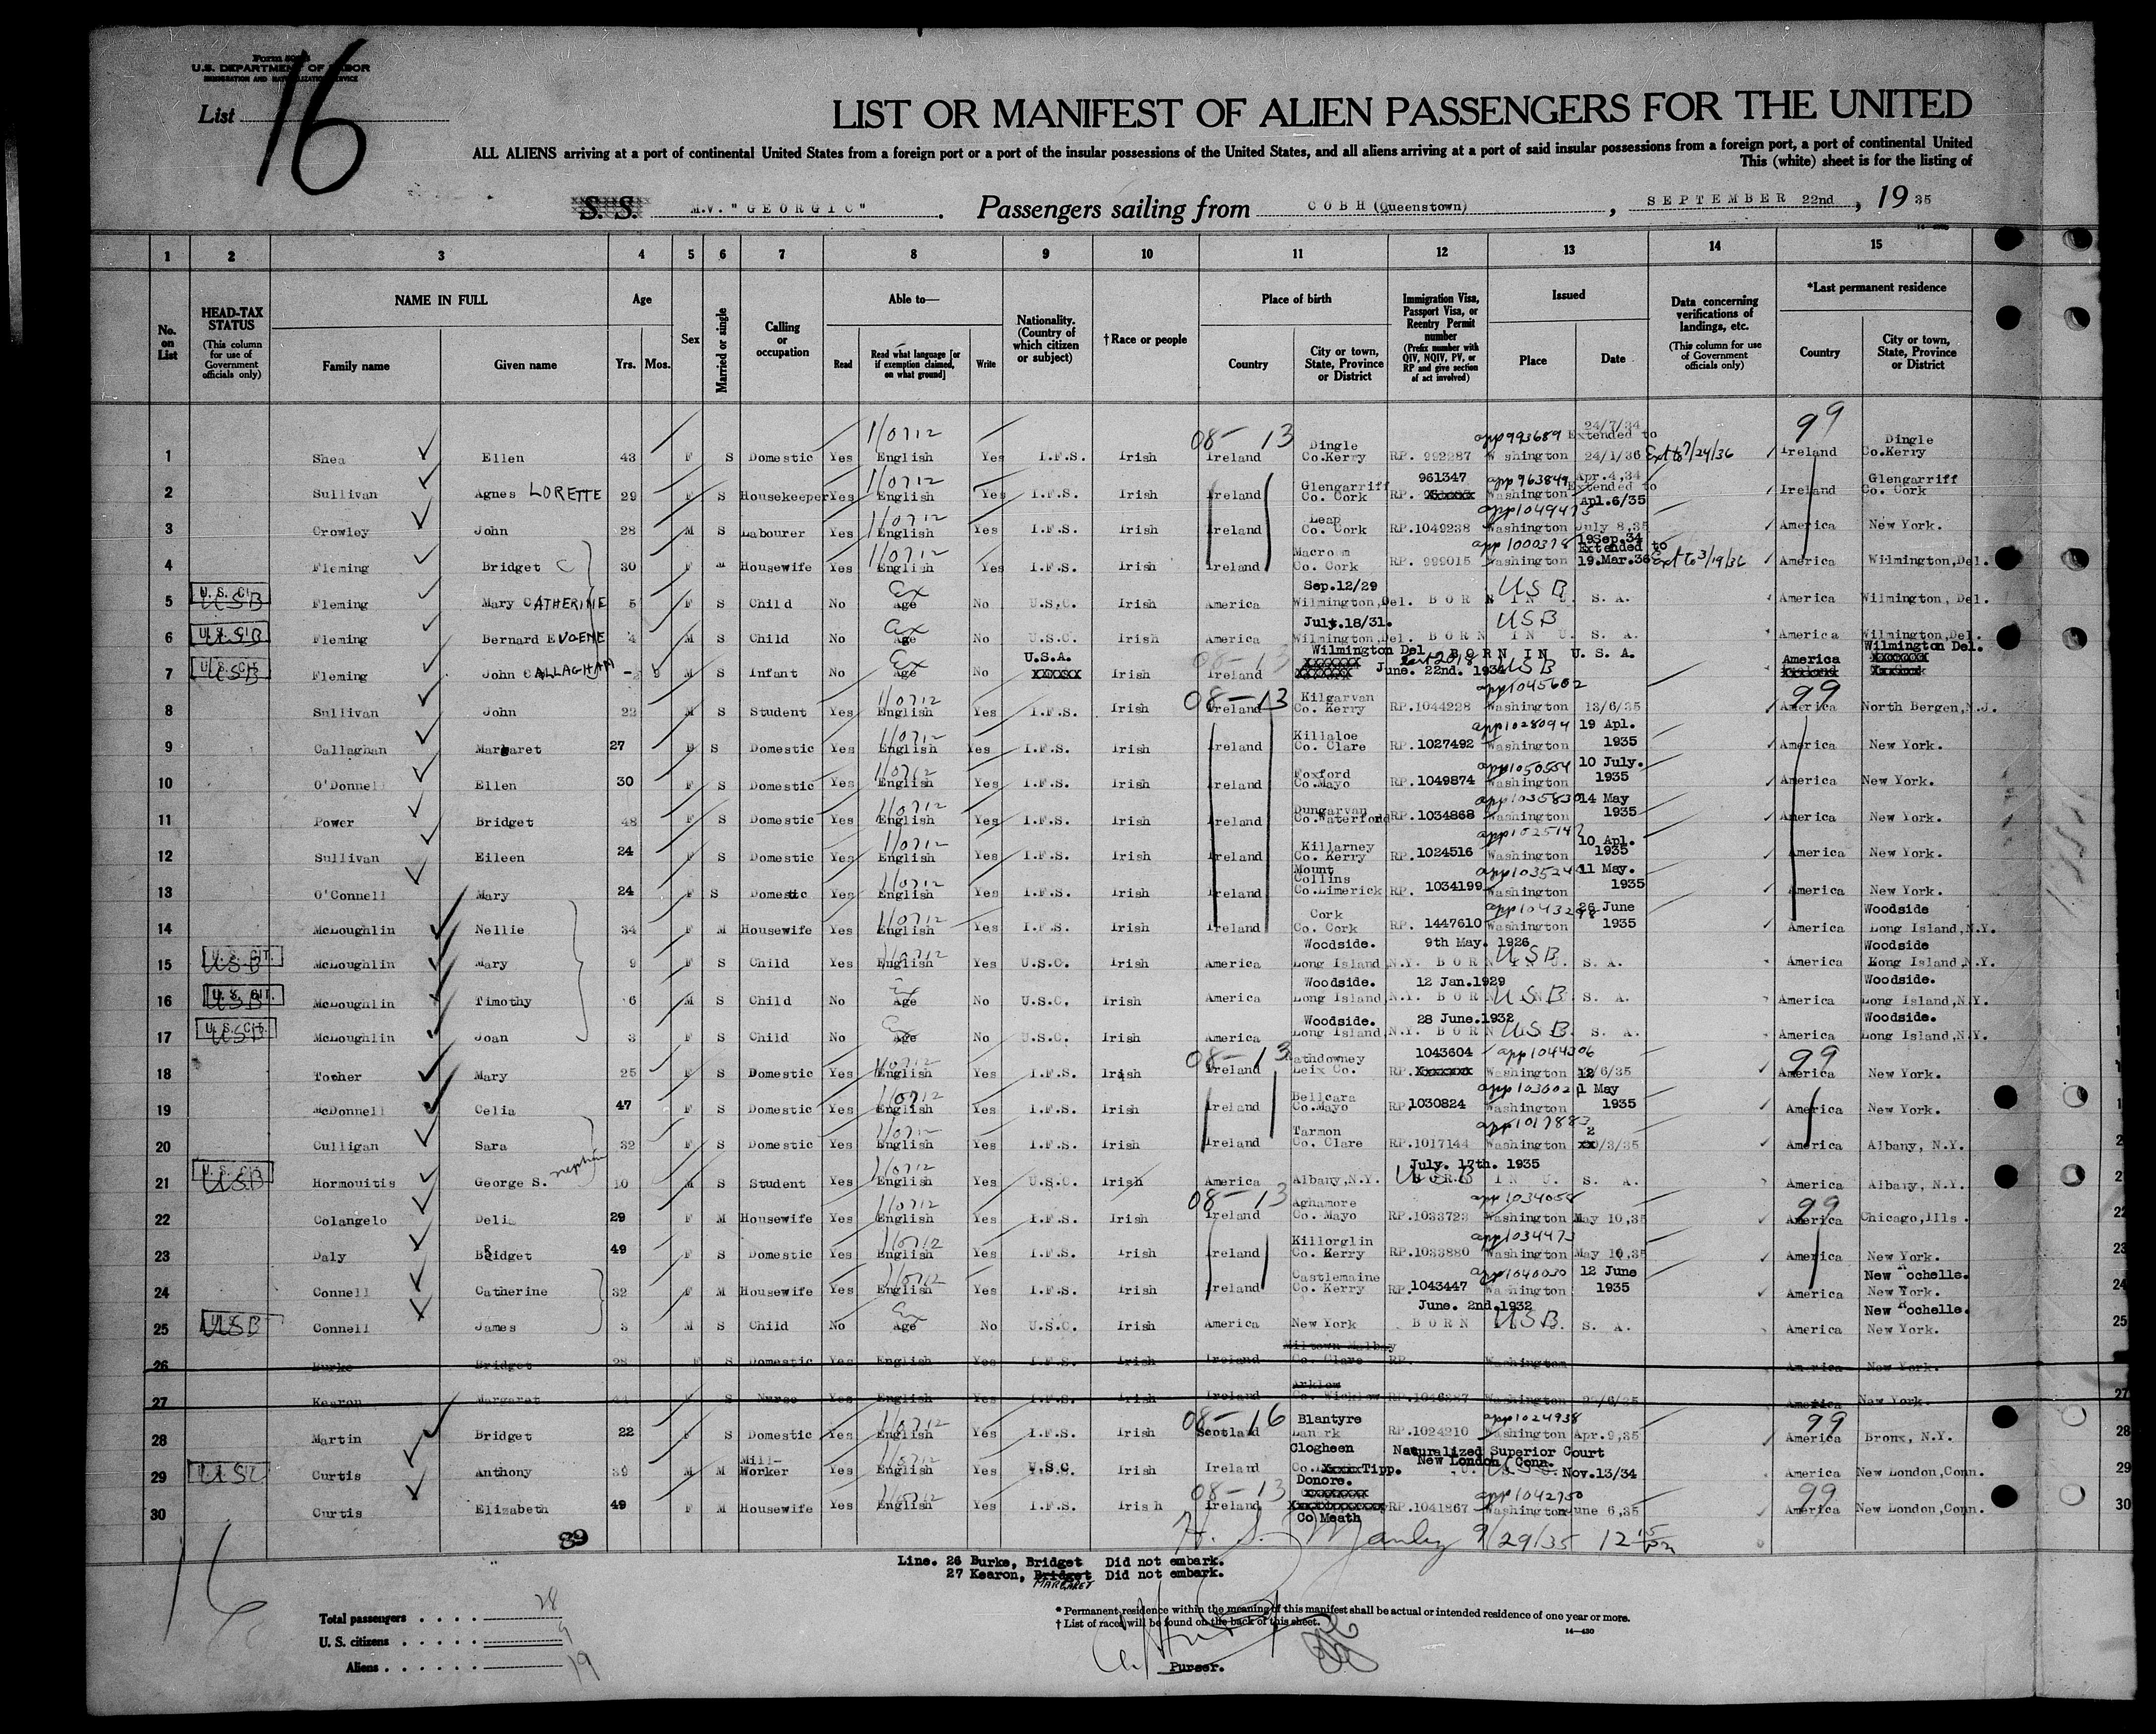 Form 500
U.S. DEPARTMENT OF LABOR
IMMIGRATION AND NATURALIZATION SERVICE
List 16
LIST OR MANIFEST OF ALIEN PASSENGERS FOR THE UNITED
ALL ALIENS arriving at a port of continental United States from a foreign port or a port of the insular possessions of the United States, and all aliens arriving at a port of said insular possessions from a foreign port, a port of continental United
This (white) sheet is for the listing of
S. S. M.V. "GEORGIC" . Passengers sailing from COBH (Queenstown) , SEPTEMBER 22nd , 19 35
1 2 3 4 5 6 7 8 9 10 11 12 13 14 15
No. on List
HEAD-TAX STATUS (This column for use of Government officials only)
NAME IN FULL
Family name Given name
Age Yrs. Mos.
Sex
Married or single
Calling or occupation
Able to—
Read Read what language [or if exemption claimed, on what ground] Write
Nationality. (Country of which citizen or subject)
†Race or people
Place of birth
Country City or town, State, Province or District
Immigration Visa, Passport Visa, or Reentry Permit number (Prefix number with QIV, NQIV, PV, or RP and give section of act involved)
Issued
Place Date
Data concerning verifications of landings, etc. (This column for use of Government officials only)
*Last permanent residence
Country City or town, State, Province or District
1 Shea Ellen 43 F S Domestic Yes English Yes I.F.S. Irish 08-13 Ireland Dingle Co.Kerry RP. 992287 app 993689 Washington 24/7/34 Extended to 24/1/36 Ext to 7/24/36 99 Ireland Dingle Co.Kerry
2 Sullivan Agnes LORETTE 29 F S Housekeeper Yes English Yes I.F.S. Irish Ireland Glengarriff Co. Cork RP. 961347 app 963849 Washington Apr.4,34 Extended to Apl.6/35 Ireland Glengarriff Co. Cork
3 Crowley John 28 M S Labourer Yes English Yes I.F.S. Irish Ireland Leap Co. Cork RP.1049238 Washington July 8,35 America New York.
4 Fleming Bridget C 30 F M Housewife Yes English Yes I.F.S. Irish Ireland Macroom Co. Cork RP. 999015 app 1000378 Washington 19Sep.34 Extended to 19.Mar.36 Ext to 3/19/36 America Wilmington,Del.
5 U.S. Cit. USB Fleming Mary CATHERINE 5 F S Child No Ex Age No U.S.C. Irish America Sep.12/29 Wilmington,Del. BORN IN U. S. A. USB America Wilmington, Del.
6 U.S. Cit. USB Fleming Bernard EUGENE 4 M S Child No Ex Age No U.S.C. Irish America July.18/31. Wilmington,Del. BORN IN U. S. A. USB America Wilmington,Del.
7 U.S. Cit. USB Fleming John CALLAGHAN - 9 M S Infant No Ex Age No U.S.A. Irish 08-13 Ireland Wilmington Del. BORN IN U. S. A. June. 22nd. 1934 USB America Wilmington Del.
8 Sullivan John 22 M S Student Yes English Yes I.F.S. Irish 08-13 Ireland Kilgarvan Co. Kerry RP.1044228 app 1045602 Washington 13/6/35 99 America North Bergen,N.J.
9 Callaghan Margaret 27 F S Domestic Yes English Yes I.F.S. Irish Ireland Killaloe Co. Clare RP.1027492 app 1028094 Washington 19 Apl. 1935 America New York.
10 O'Donnell Ellen 30 F S Domestic Yes English Yes I.F.S. Irish Ireland Foxford Co.Mayo RP.1049874 app 1050554 Washington 10 July. 1935 America New York.
11 Power Bridget 48 F S Domestic Yes English Yes I.F.S. Irish Ireland Dungarvan Co.Waterford RP.1034868 app 1035830 Washington 14 May 1935 America New York.
12 Sullivan Eileen 24 F S Domestic Yes English Yes I.F.S. Irish Ireland Killarney Co. Kerry RP.1024516 Washington 10 Apl. 1935 America New York.
13 O'Connell Mary 24 F S Domestic Yes English Yes I.F.S. Irish Ireland Mount Collins Co.Limerick RP. 1034199 Washington 11 May. 1935 America New York.
14 McLoughlin Nellie 34 F M Housewife Yes English Yes I.F.S. Irish Ireland Cork Co. Cork RP. 1447610 Washington 26 June 1935 America Woodside Long Island,N.Y.
15 U.S. CIT. USB McLoughlin Mary 9 F S Child Yes English Yes U.S.C. Irish America Woodside. Long Island,N.Y. 9th May. 1926 BORN IN U. S. A. USB America Woodside Long Island,N.Y.
16 U.S. CIT. USB McLoughlin Timothy 6 M S Child No Ex Age No U.S.C. Irish America Woodside. Long Island,N.Y. 12 Jan.1929 BORN IN U. S. A. USB America Woodside. Long Island,N.Y.
17 U.S. Cit. USB McLoughlin Joan 3 F S Child No Ex Age No U.S.C. Irish America Woodside. Long Island,N.Y. 28 June.1932 BORN IN U. S. A. USB America Woodside. Long Island,N.Y.
18 Tocher Mary 25 F S Domestic Yes English Yes I.F.S. Irish 08-13 Ireland Rathdowney Leix Co. RP. 1043604 app 1044306 Washington 12/6/35 99 America New York.
19 McDonnell Celia 47 F S Domestic Yes English Yes I.F.S. Irish Ireland Bellcara Co.Mayo RP.1030824 Washington 1 May 1935 America New York.
20 Culligan Sara 32 F S Domestic Yes English Yes I.F.S. Irish Ireland Tarmon Co. Clare RP.1017144 app 1017883 Washington 20/3/35 America Albany, N.Y.
21 U.S. Cit. USB Hormouitis George S. nephew 10 M S Student Yes English Yes U.S.C. Irish America Albany,N.Y. July. 17th. 1935 BORN IN U. S. A. USB America Albany, N.Y.
22 Colangelo Delia 29 F M Housewife Yes English Yes I.F.S. Irish 08-13 Ireland Aghamore Co. Mayo RP.1033723 app 1034058 Washington May 10,35 99 America Chicago,Ills.
23 Daly Bridget 49 F S Domestic Yes English Yes I.F.S. Irish Ireland Killorglin Co. Kerry RP.1033880 app 1034473 Washington May 10,35 America New York.
24 Connell Catherine 32 F M Housewife Yes English Yes I.F.S. Irish Ireland Castlemaine Co. Kerry RP.1043447 app 1040030 Washington 12 June 1935 America New Rochelle. New York.
25 USB Connell James 3 M S Child No Ex Age No U.S.C. Irish America New York June. 2nd.1932 BORN IN U. S. A. USB America New Rochelle. New York.
26 Burke Bridget 28 F S Domestic Yes English Yes I.F.S. Irish Ireland Miltown Malbay Co. Clare RP. Washington America New York.
27 Kearon Margaret 44 F S Nurse Yes English Yes I.F.S. Irish Ireland Arklow Co. Wicklow RP.1046287 Washington 22/6/35 America New York.
28 Martin Bridget 22 F S Domestic Yes English Yes I.F.S. Irish 08-16 Scotland Blantyre Lanark RP.1024210 app 1024938 Washington Apr.9,35 99 America Bronx, N.Y.
29 USC Curtis Anthony 39 M M Mill-Worker Yes English Yes U.S.C. Irish Ireland Clogheen Co. Tipp. Naturalized Superior Court New London, Conn. Nov.13/34 America New London,Conn.
30 Curtis Elizabeth 49 F M Housewife Yes English Yes I.F.S. Irish 08-13 Ireland Donore. Co Meath RP.1041867 app 1042750 Washington June 6,35 99 America New London,Conn.
39
H. S. Manley 9/29/35 12 15
Line. 26 Burke, Bridget Did not embark.
27 Kearon, Bridget MARGARET Did not embark.
Total passengers . . . . . 28
U. S. citizens . . . . . 9
Aliens . . . . . . 19
* Permanent residence within the meaning of this manifest shall be actual or intended residence of one year or more.
† List of races will be found on the back of this sheet.
14—430
Purser.